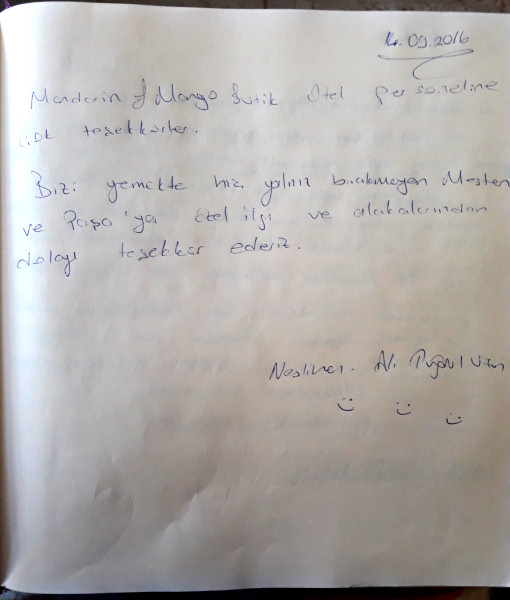 14.09.2016
Mandarin & Mango Butik Otel personeline
çok teşekkürler.
Bizi yemekte hiç yalnız bırakmayan Mesten
ve Paşa'ya özel ilgi ve alakalarından
dolayı teşekkür ederiz.
Neslihan. Ali